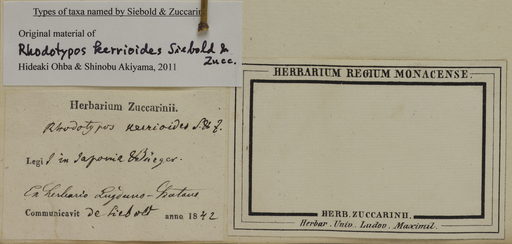 Types of taxa named by Siebold & Zuccarini
Original material of
Rhodotypos kerrioides Siebold &
Zucc.
Hideaki Ohba & Shinobu Akiyama, 2011
HERBARIUM REGIUM MONACENSE.
Herbarium Zuccarinii.
Rhodotypos kerrioides S. & Z.
Legi in Japonia Bürger.
Ex herbario Lugduno-Batavo
Communicavit de Siebold anno 1842
HERB. ZUCCARINII.
Herbar. Univ. Ludov. Maximil.